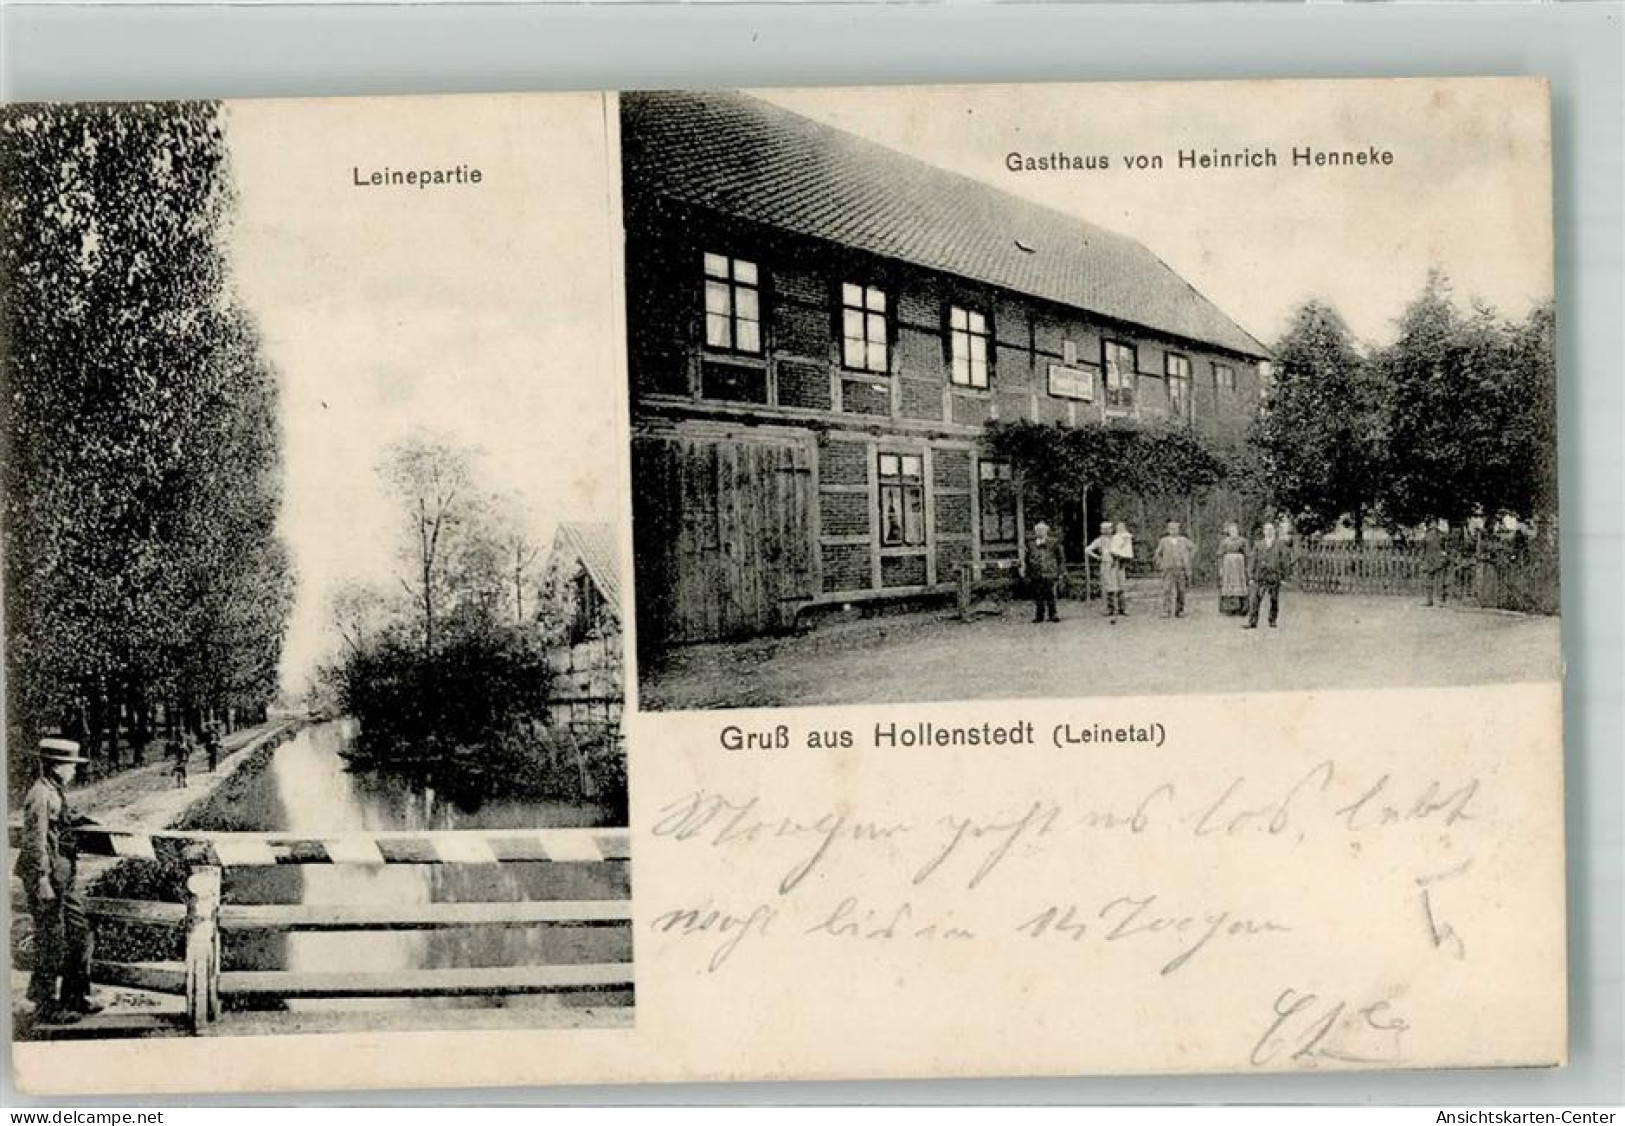 Leinepartie
Gasthaus von Heinrich Henneke
Gruß aus Hollenstedt (Leinetal)
Morgen geht es los, lebt
wohl bis in 14 Tagen
delcampe.net
Ansichtskarten-Center